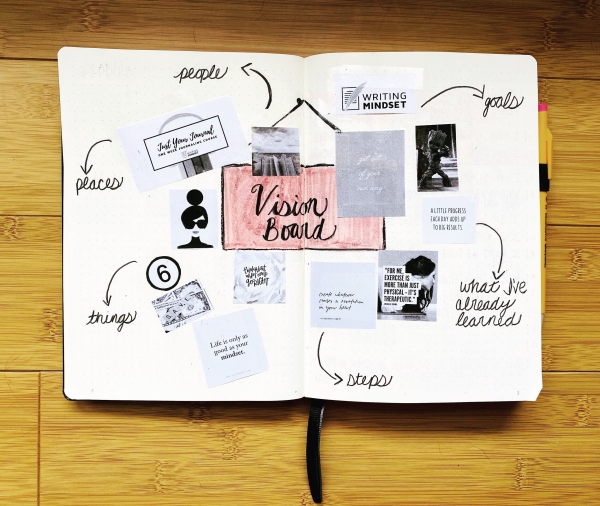 people
WRITING
MINDSET
goals
Just Your Journal
ONE WEEK JOURNALING COURSE
places
Vision
Board
A LITTLE PROGRESS
EACH DAY ADDS UP
TO BIG RESULTS.
6
things
Life is only as
good as your
mindset.
create whatever
causes a revolution
in your heart
"FOR ME,
EXERCISE IS
MORE THAN JUST
PHYSICAL - IT'S
THERAPEUTIC."
what I've
already
learned
steps